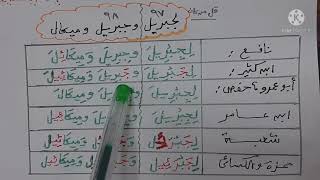 قل من كان
٩٧ ٩٨
لجبريل وجبريل وميكال
نافع: لِجِبْرِيلَ وَجِبْرِيلَ وَمِيكَائِلَ
ابن كثير: لِجَبْرِيلَ وَجَبْرِيلَ وَمِيكَائِيلَ
أبو عمرو وحفص: لِجِبْرِيلَ وَجِبْرِيلَ وَمِيكَالَ
ابن عامر لِجِبْرِيلَ وَجِبْرِيلَ وَمِيكَائِيلَ
شعبة
حمزة والكسائي لِجَبْرَئِيلَ وَجَبْرَئِيلَ وَمِيكَائِيلَ